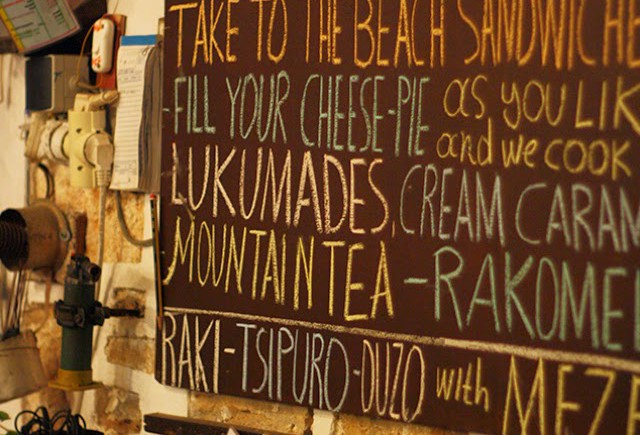 TAKE TO THE BEACH SANDWICHE
-FILL YOUR CHEESE-PIE as you LIK
and we cook
LUKUMADES, CREAM CARAM
MOUNTAIN TEA - RAKOME
RAKI-TSIPURO-OUZO with MEZE